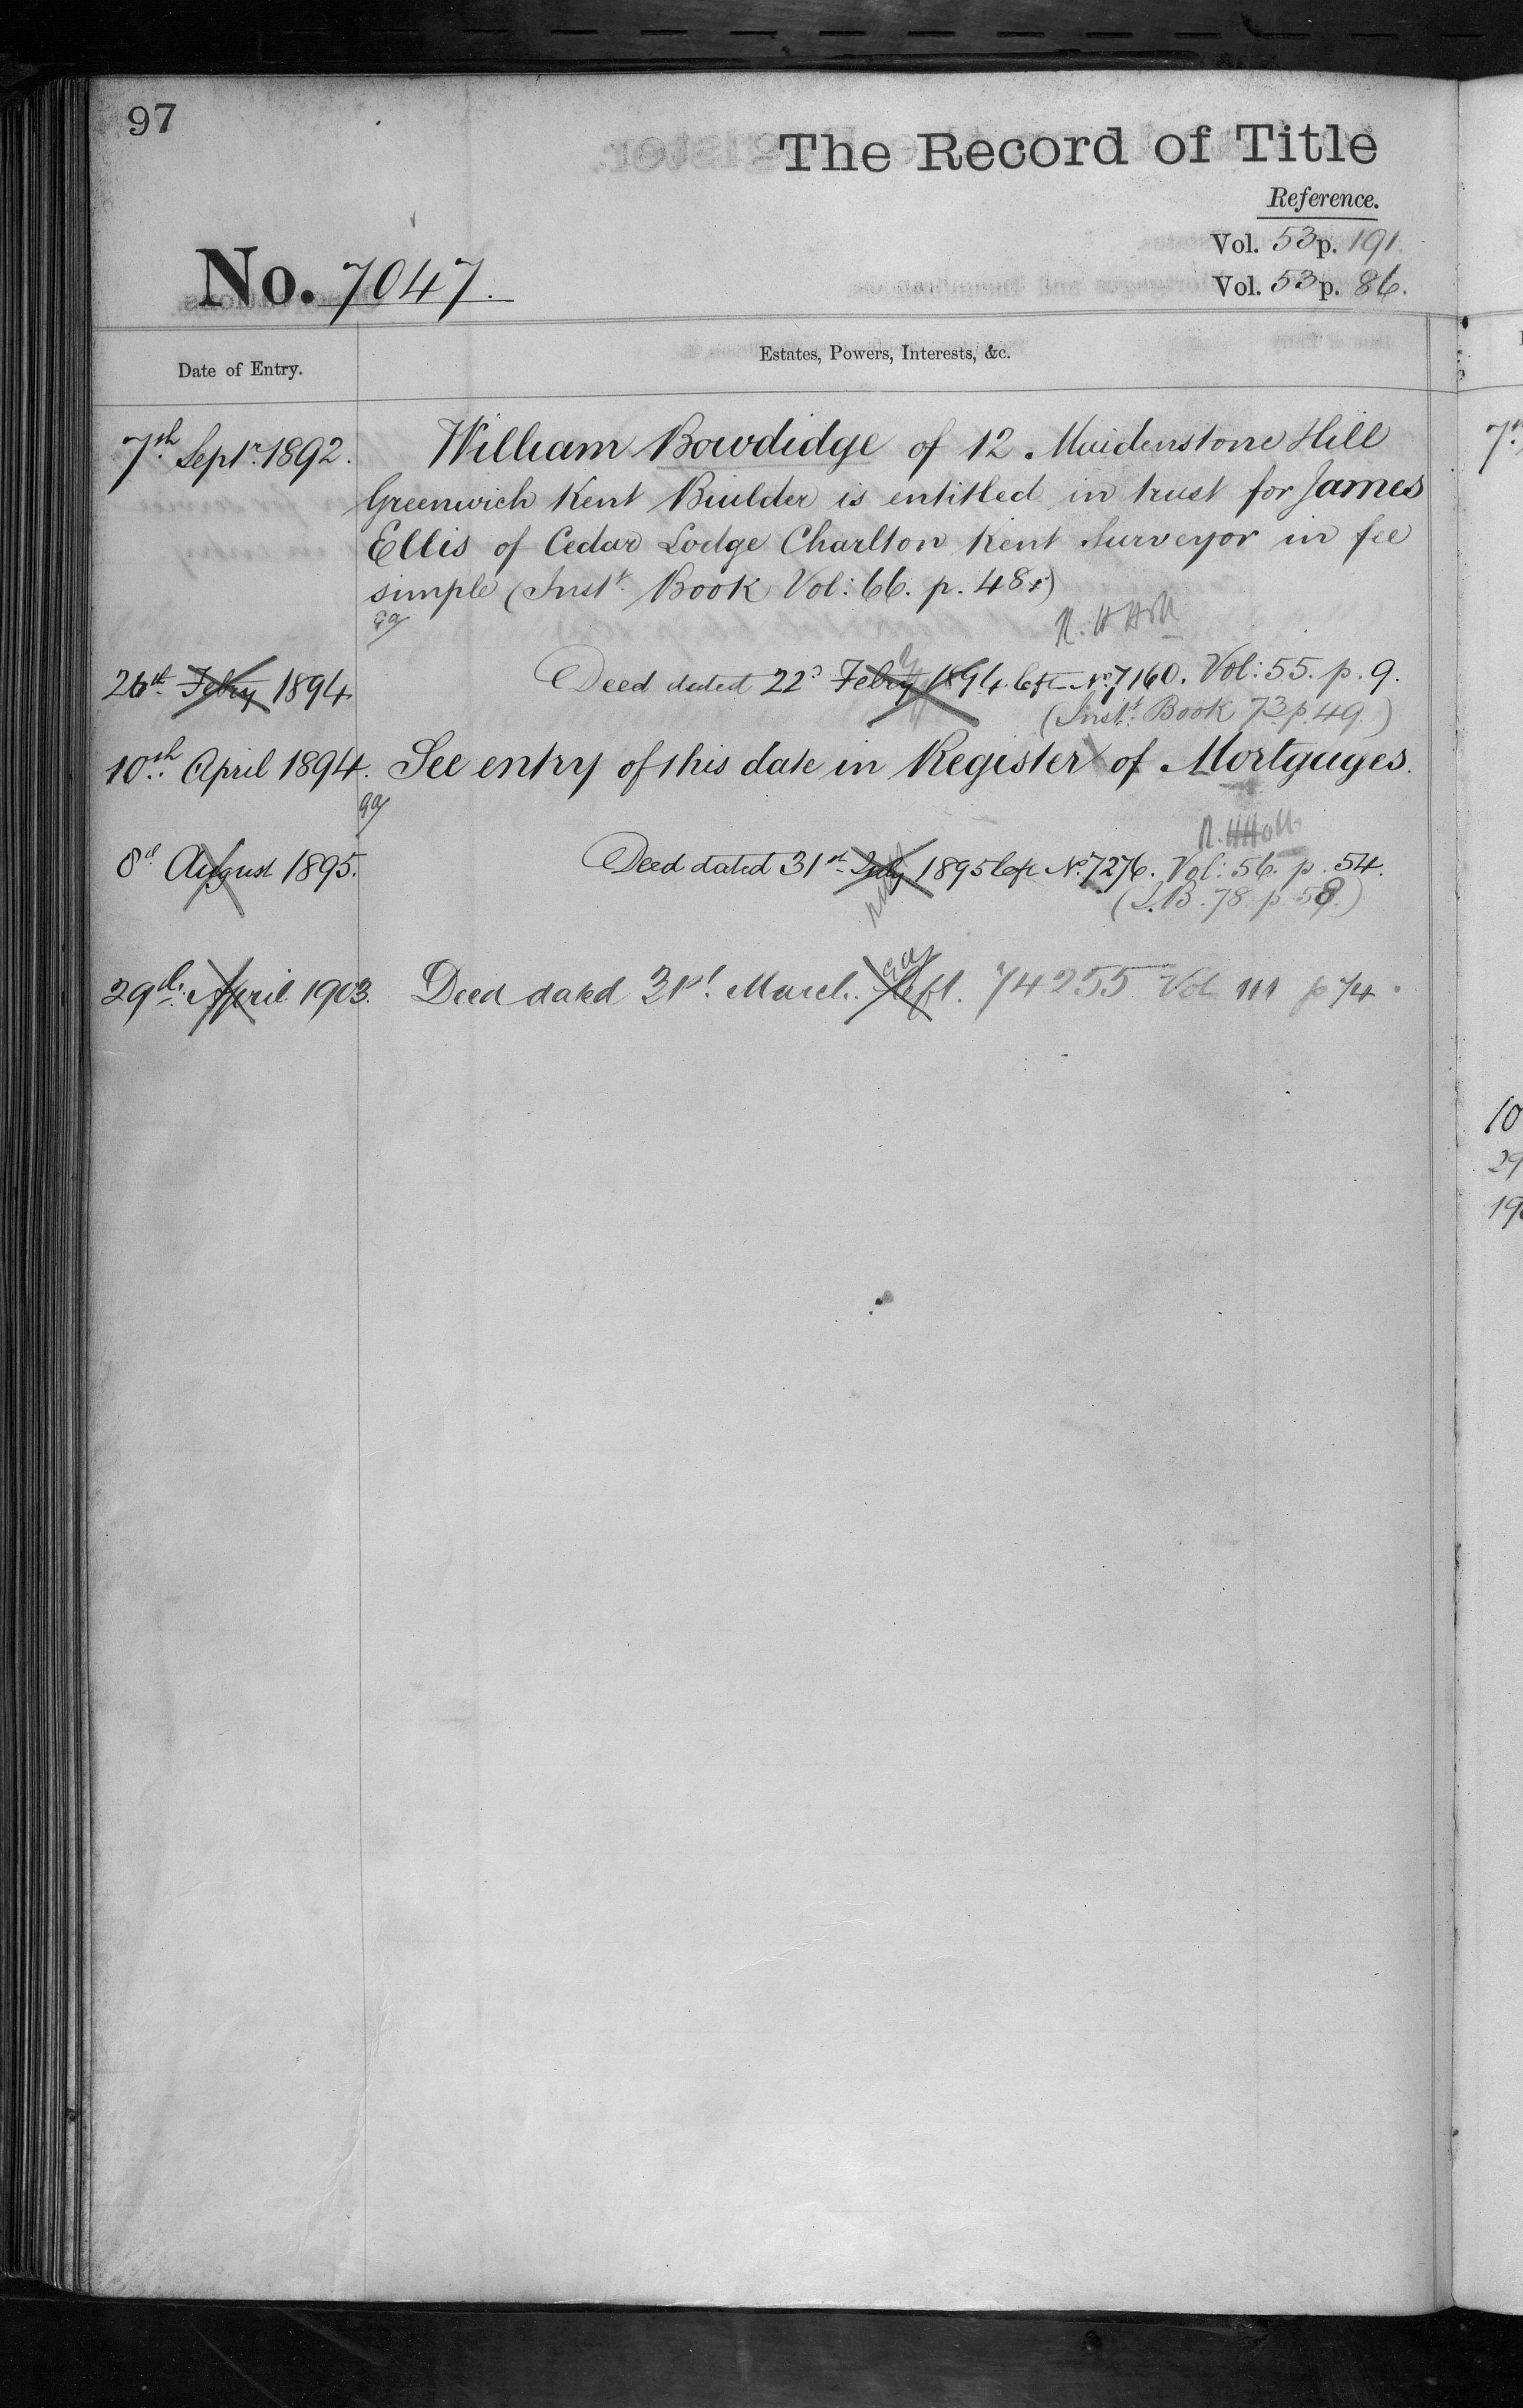 97
The Record of Title
Reference.
Vol. 53 p. 191.
No. 7047.
Vol. 53 p. 86.
Date of Entry.
Estates, Powers, Interests, &c.
7th Septr. 1892. William Bowdidge of 12 Maidenstone Hill
Greenwich Kent Builder is entitled in trust for James
Ellis of Cedar Lodge Charlton Kent Surveyor in fee
simple (Instt. Book Vol: 66. p. 48.)
26th Febry 1894. Deed dated 22d Febry 1894 left No. 7160. Vol: 55. p. 9.
(Instt. Book 73 p. 49.)
10th April 1894. See entry of this date in Register of Mortgages.
8th August 1895. Deed dated 31st July 1895 left No. 7276. Vol: 56. p. 54.
(I.B. 78 p. 58.)
29th April 1903. Deed dated 31st March left. 74255 Vol 111 p 74.
10
29